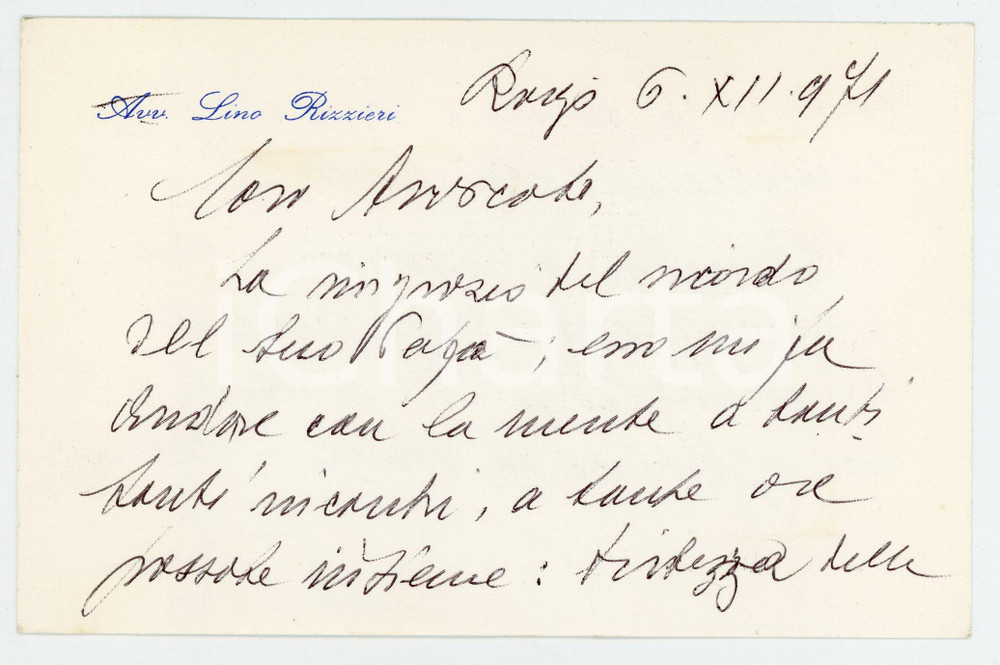 Avv. Lino Rizzieri
Rovigo 6.XII.971
Caro Avvocato,
La ringrazio del ricordo
del Suo Papà; esso mi fa
andare con la mente a tanti
tanti incontri, a tante ore
passate insieme: tristezza delle
iCharta